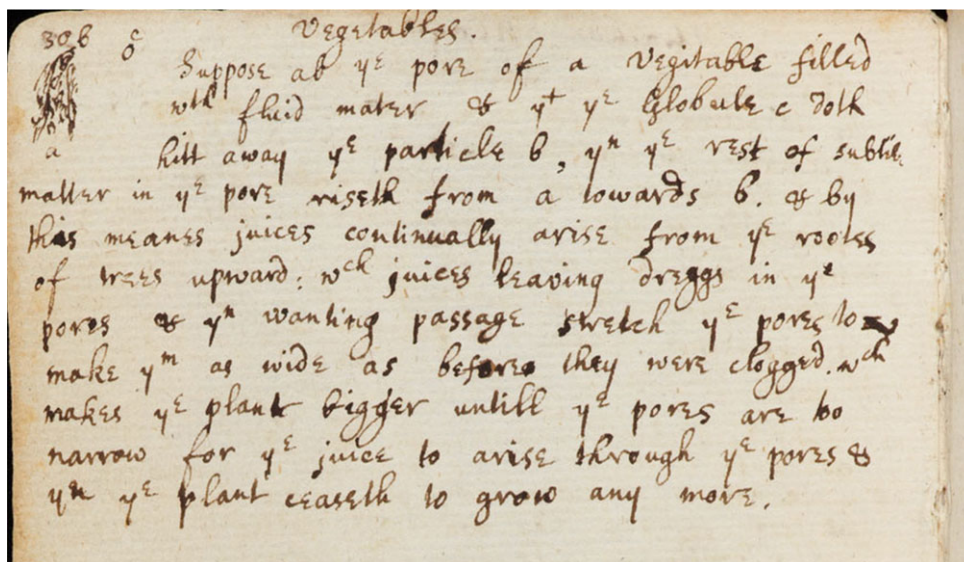 Vegetables.
306 c
b
Suppose ab yᵉ pore of a Vegitable filled
wth fluid mater & yt yᵉ Globule c doth
a hitt away yᵉ particle b, yn yᵉ rest of subtile
matter in yᵉ pore riseth from a towards b. & by
this meanes juices continually arise from yᵉ rootes
of trees upward: wch juices leaving dreggs in yᵉ
pores & yn wanting passage stretch yᵉ pores to
make ym as wide as before they were clogged. wch
makes yᵉ plant bigger untill yᵉ pores are too
narrow for yᵉ juice to arise through yᵉ pores &
yn yᵉ plant ceaseth to grow any more.